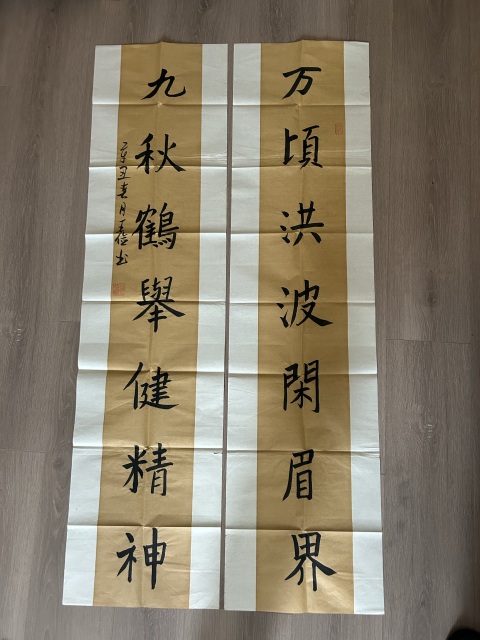 万頃洪波閑眉界
九秋鶴舉健精神
辛丑春月
書